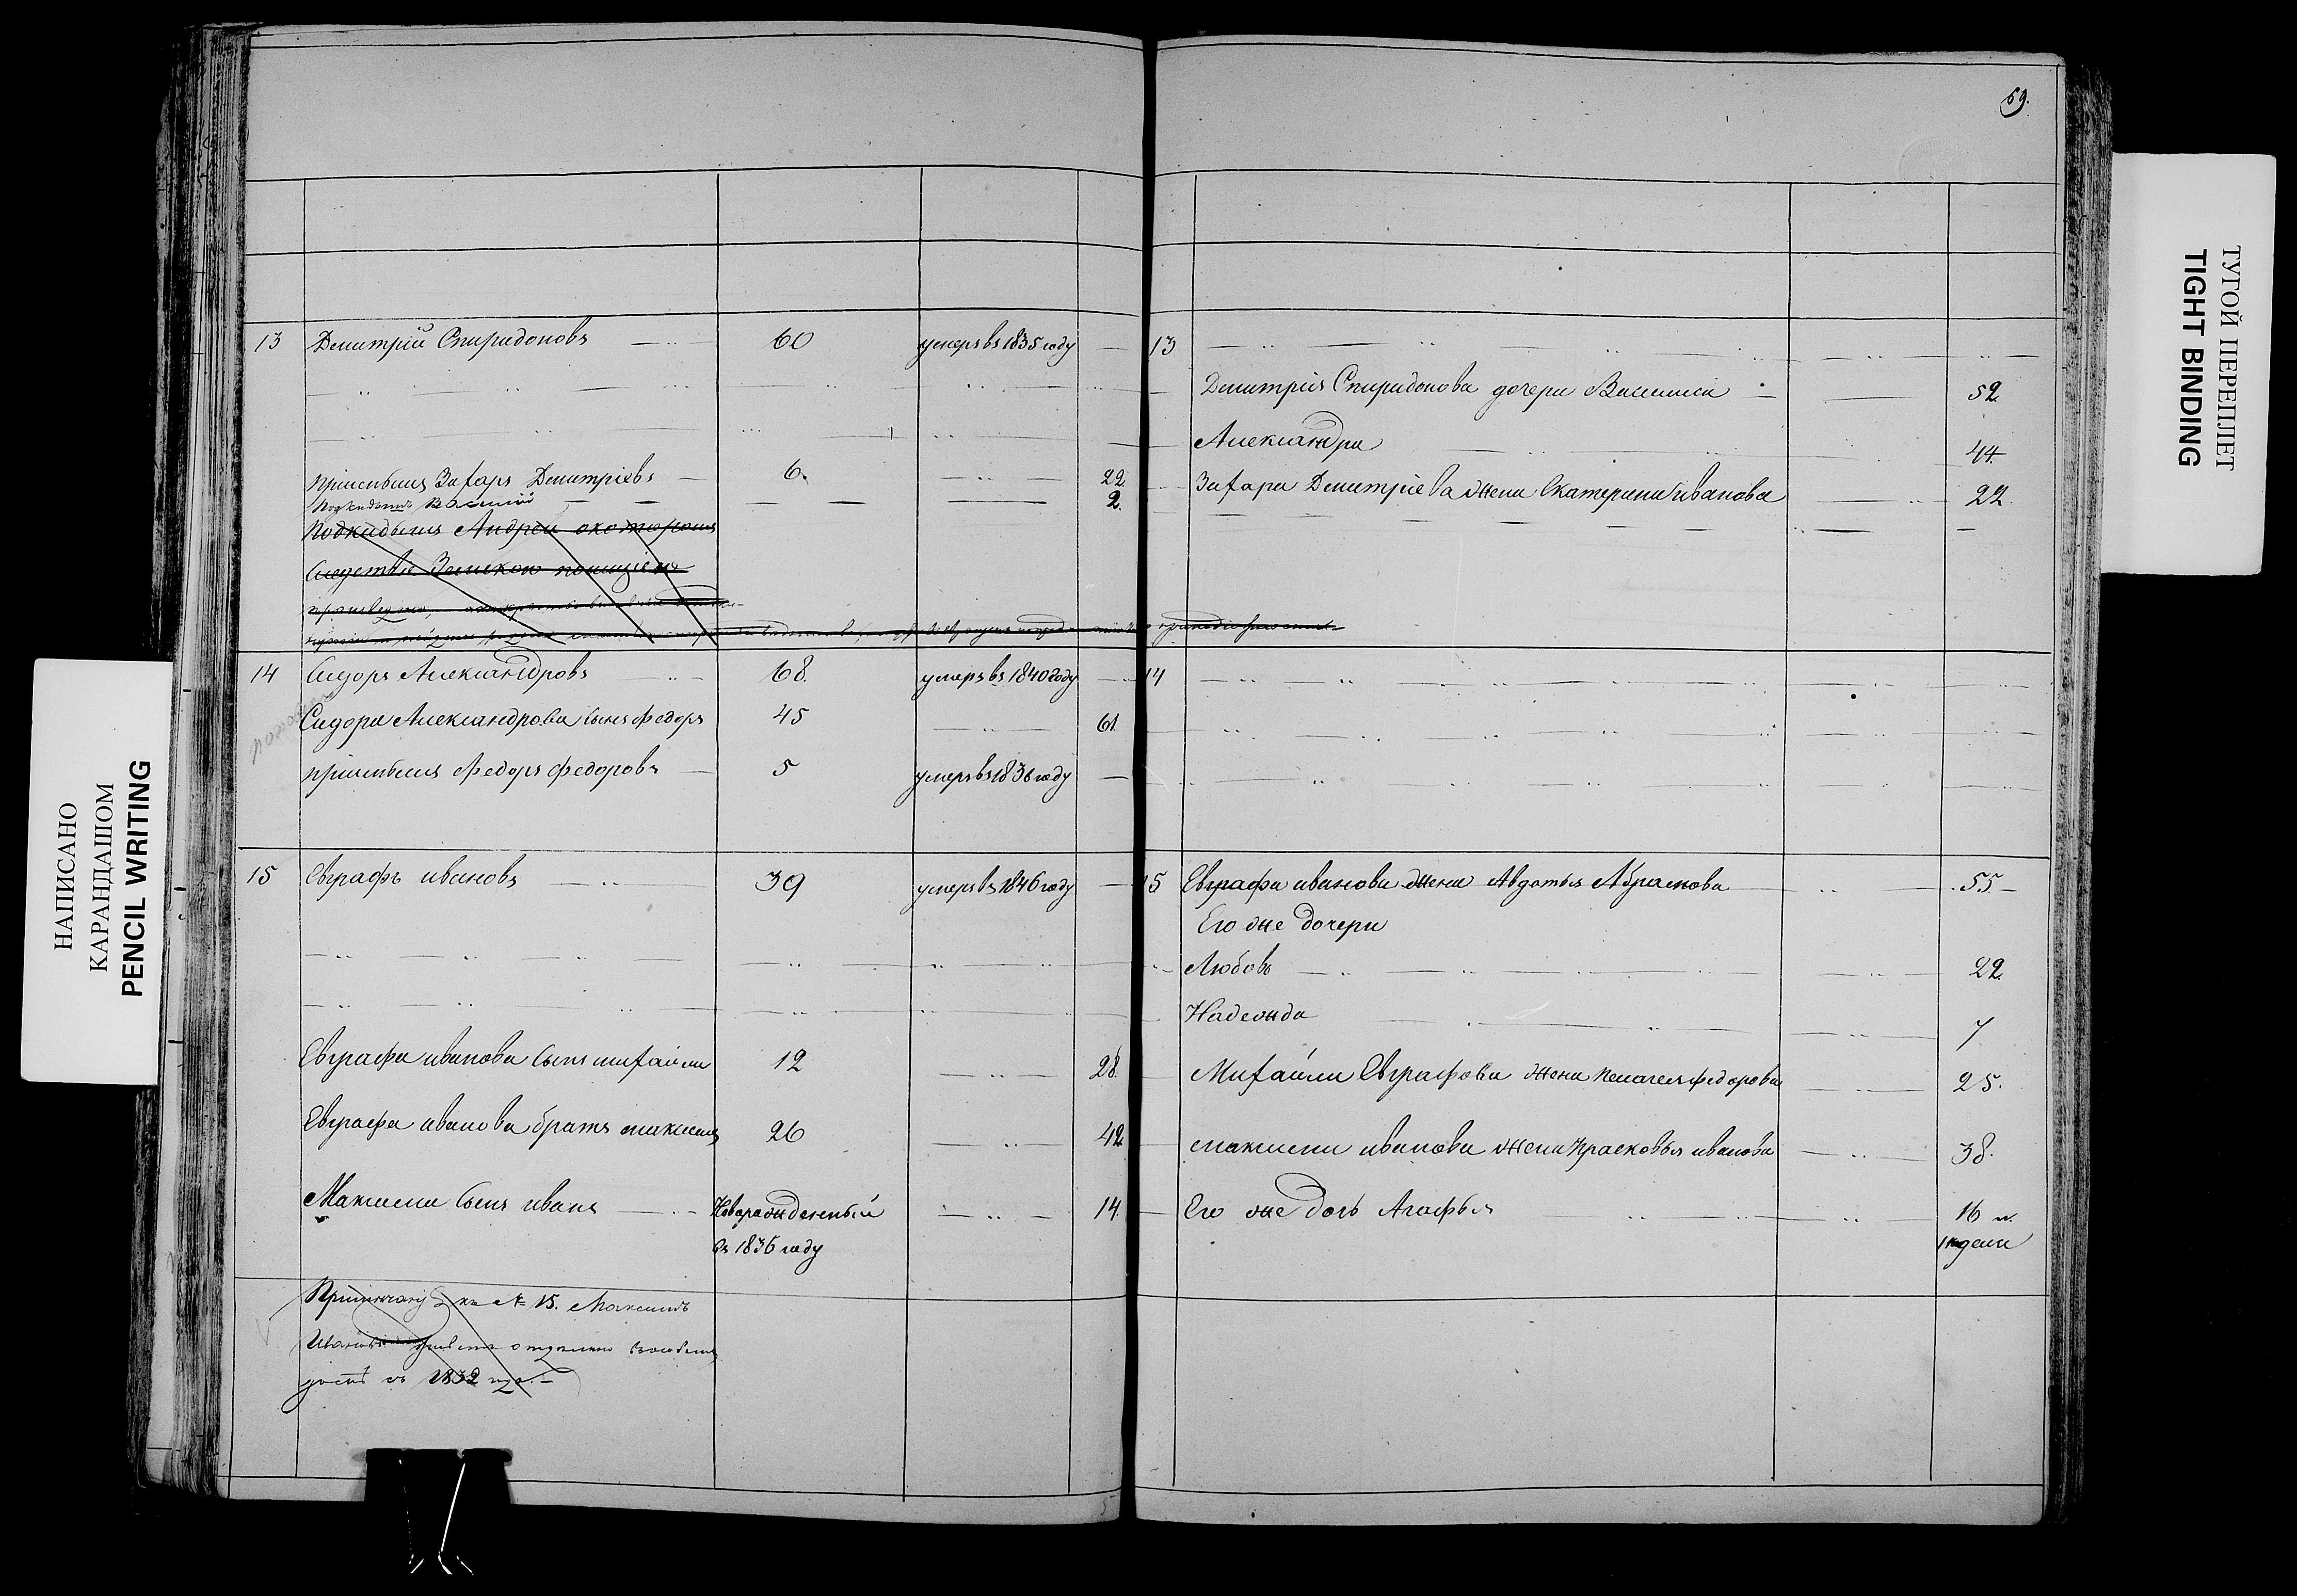 69.
13 Дмитрій Спиридоновъ 60 умеръ въ 1835 году
пріемышъ Захаръ Дмитріевъ 6. 22.
Подкидышъ Василій 2.
Подкидышъ Андрей о которомъ
Следствіе Земскою полиціею
произведено,
14 Сидоръ Александровъ 68. умеръ въ 1840 году
Сидора Александрова сынъ Федоръ 45 61.
пріемышъ Федоръ Федоровъ 5 умеръ въ 1836 году
15 Евграфъ ивановъ 39 умеръ въ 1846 году
Евграфа иванова сынъ михайла 12 28.
Евграфа иванова братъ максимъ 26 42
Максима сынъ иванъ Новорожденный 14.
въ 1836 году
къ № 15. Максимъ
Ивановъ отдельно
съ 1832 года.
13
Дмитрія Спиридонова дочери Василиса 52
Александра 44.
Захара Дмитріева жена Екатерина иванова 22
14
15 Евграфа иванова жена Авдотья Абрамова 55
Его же дочери
Любовь 22
Надежда 7
Михайлы Евграфова жена пелагея федорова 25.
максима иванова жена прасковья иванова 38.
Его же дочь Агафья 16 и.
1 недели
НАПИСАНО
КАРАНДАШОМ
PENCIL WRITING
ТУГОЙ ПЕРЕПЛЕТ
TIGHT BINDING